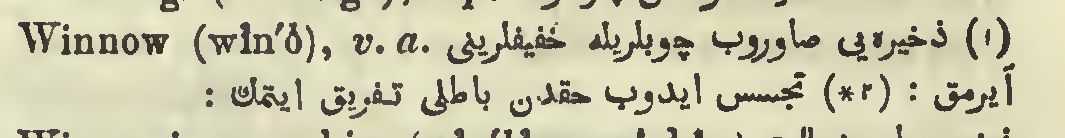 Winnow (wĭn′ŏ), v. a. (۱) ذخیره‌یی صاوروب چوبلریله خفیفلرینی
آیرمق : (۲*) تجسس ایدوب حقدن باطلی تفریق ایتمك :